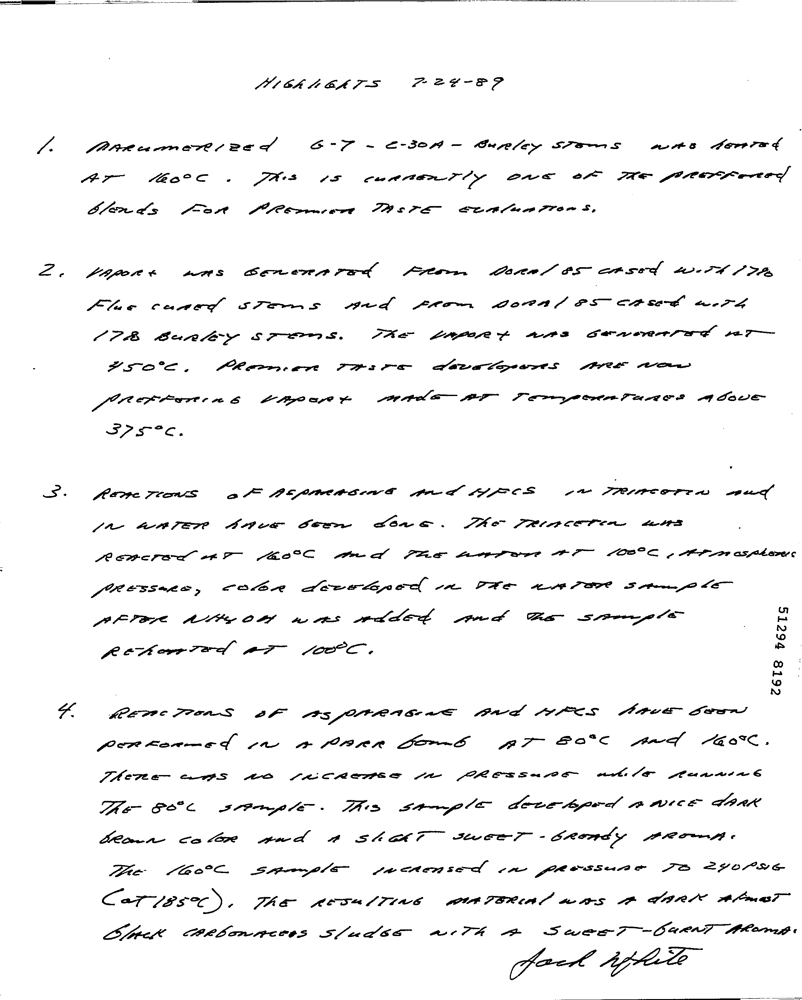 HIGHLIGHTS 7-24-89
1. MARUMORIZED G-7-C-30A - BURLEY STEMS WAS HEATED
AT 160°C. THIS IS CURRENTLY ONE OF THE PREFFERED
BLENDS FOR PREMIER TASTE EVALUATIONS.
2. VAPOR+ WAS GENERATED FROM DORAL 85 CASED WITH 17%
FLUE CURED STEMS AND FROM DORAL 85 CASED WITH
17% BURLEY STEMS. THE VAPOR+ WAS GENERATED AT
450°C. PREMIER TASTE DEVELOPERS ARE NOW
PREFFERING VAPOR+ MADE AT TEMPERATURES ABOVE
375°C.
3. REACTIONS OF ASPARAGINE AND HFCS IN TRIACETIN AND
IN WATER HAVE BEEN DONE. THE TRIACETIN WAS
REACTED AT 160°C AND THE WATER AT 100°C, ATMOSPHERIC
PRESSURE, COLOR DEVELOPED IN THE WATER SAMPLE
AFTER NH4OH WAS ADDED AND THE SAMPLE
REHEATED AT 100°C.
4. REACTIONS OF ASPARAGINE AND HFCS HAVE BEEN
PERFORMED IN A PARR BOMB AT 80°C AND 160°C.
THERE WAS NO INCREASE IN PRESSURE WHILE RUNNING
THE 80°C SAMPLE. THIS SAMPLE DEVELOPED A NICE DARK
BROWN COLOR AND A SLIGHT SWEET-BREADY AROMA.
THE 160°C SAMPLE INCREASED IN PRESSURE TO 240 PSIG
(AT 185°C). THE RESULTING MATERIAL WAS A DARK ALMOST
BLACK CARBONACEOS SLUDGE WITH A SWEET-BURNT AROMA.
Jack White
51294 8192